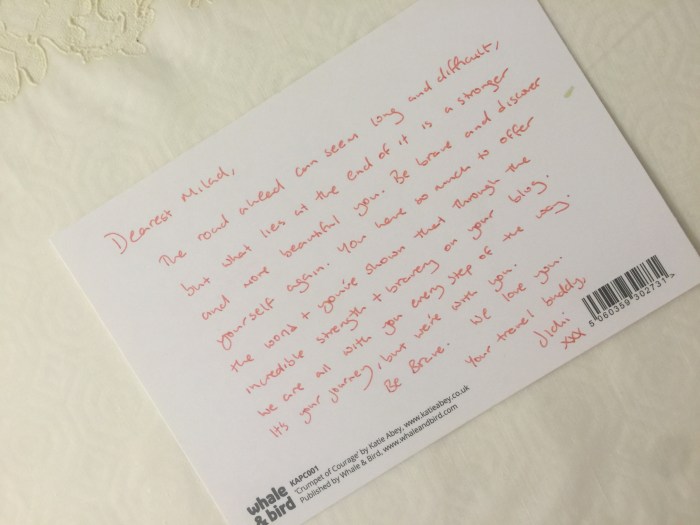 Dearest Milad,
The road ahead can seem long and difficult,
but what lies at the end of it is a stronger
and more beautiful you. Be brave and discover
yourself again. You have so much to offer
the world + you've shown that through the
incredible strength + bravery on your blog.
We are all with you every step of the way.
It's your journey, but we're with you.
Be Brave. We love you.
Your travel buddy,
xxx
5 060359 302731 >
whale
& bird
KAPC001
'Crumpet of Courage' by Katie Abey, www.katieabey.co.uk
Published by Whale & Bird, www.whaleandbird.com